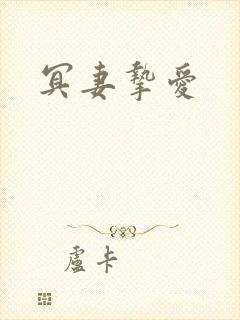 冥妻摯愛
盧卡